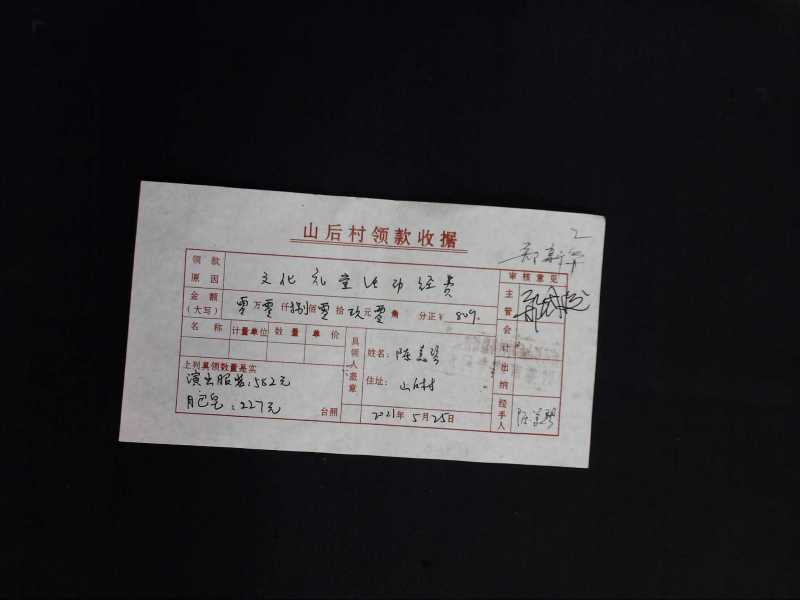 山后村领款收据
2
郑新
领款原因 文化礼堂活动经费
审核意见
金额(大写) 零万零仟捌佰零拾玖元零角 分正¥ 809.
主管
名称 计量单位 数量 单价
会计
具领人盖章
姓名: 陈美琴
上列具领数量是实
出纳
演出服装:582元
住址: 山后村
227元
台照
2021年5月25日
经手人 陈美琴